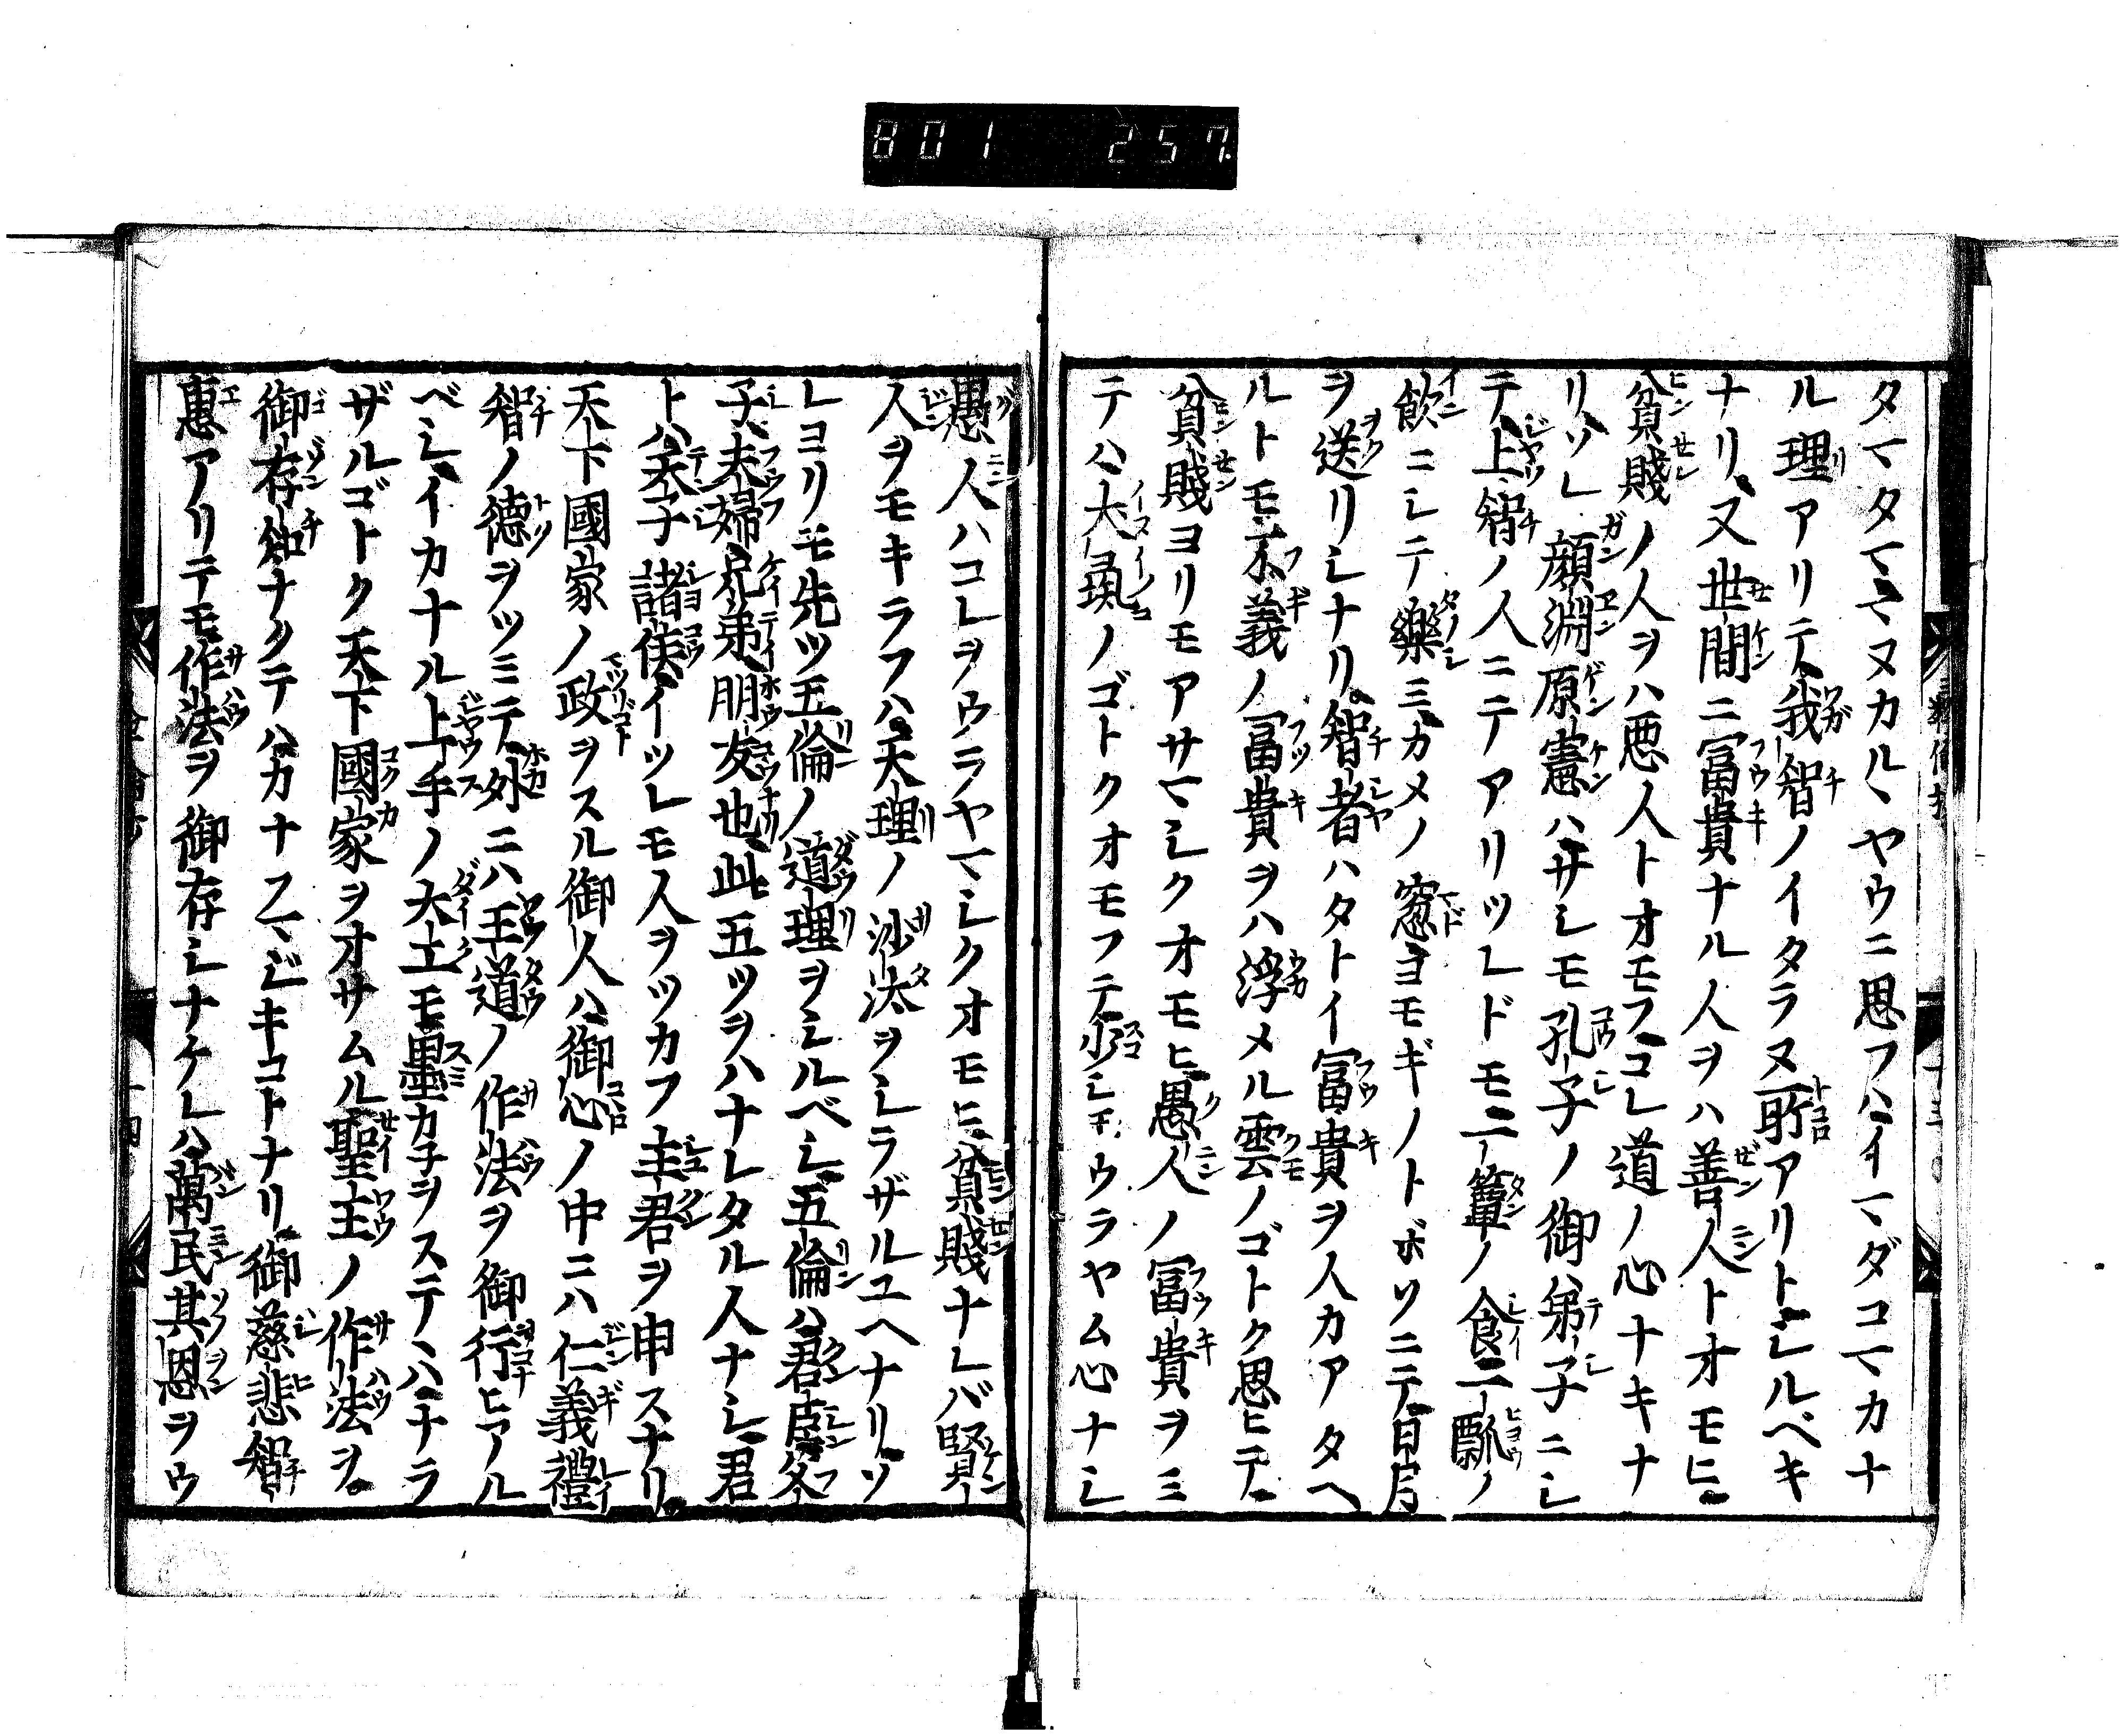 801 257
タマタママヌカルヽヤウニ思フハイマダコマカナ
ル理アリテ我智ノイタラヌ所アリトシルベキ
ナリ又世間ニ冨貴ナル人ヲハ善人トオモヒ
貧賤ノ人ヲハ悪人トオモフコレ道ノ心ナキナ
リソレ顔淵原憲ハサシモ孔子ノ御弟子ニシ
テ上智ノ人ニテアリツレドモ一箪ノ食一瓢ノ
飲ニシテ樂ミカメノ窓ヨモギノトボソニテ日月
ヲ送リシナリ智者ハタトイ冨貴ヲ人カアタヘ
ルトモ不義ノ冨貴ヲハ浮メル雲ノゴトク思ヒテ
貧賤ヨリモアサマシクオモヒ愚人ノ冨貴ヲミ
テハ犬ノゴトクオモフテ少シモウラヤム心ナシ
愚人ハコレヲウラヤマシクオモヒ貧賤ナレバ賢
人ヲモキラフハ天理ノ沙汰ヲシラザルユヘナリソ
レヨリモ先ツ五倫ノ道理ヲシルベシ五倫ハ君臣父
子夫婦兄弟朋友也此五ツヲハナレタル人ナシ君
トハ天子諸侯イツレモ人ヲツカフ主君ヲ申スナリ
天下國家ノ政ヲスル御人ハ御心ノ中ニハ仁義禮
智ノ德ヲツミテ外ニハ王道ノ作法ヲ御行ヒアル
ベシイカナル上手ノ大工モ墨カネヲステヽハナラ
ザルゴトク天下國家ヲオサムル聖主ノ作法ヲ
御存知ナクテハカナフマジキコトナリ御慈悲智
惠アリテモ作法ヲ御存シナケレハ萬民其恩ヲウ